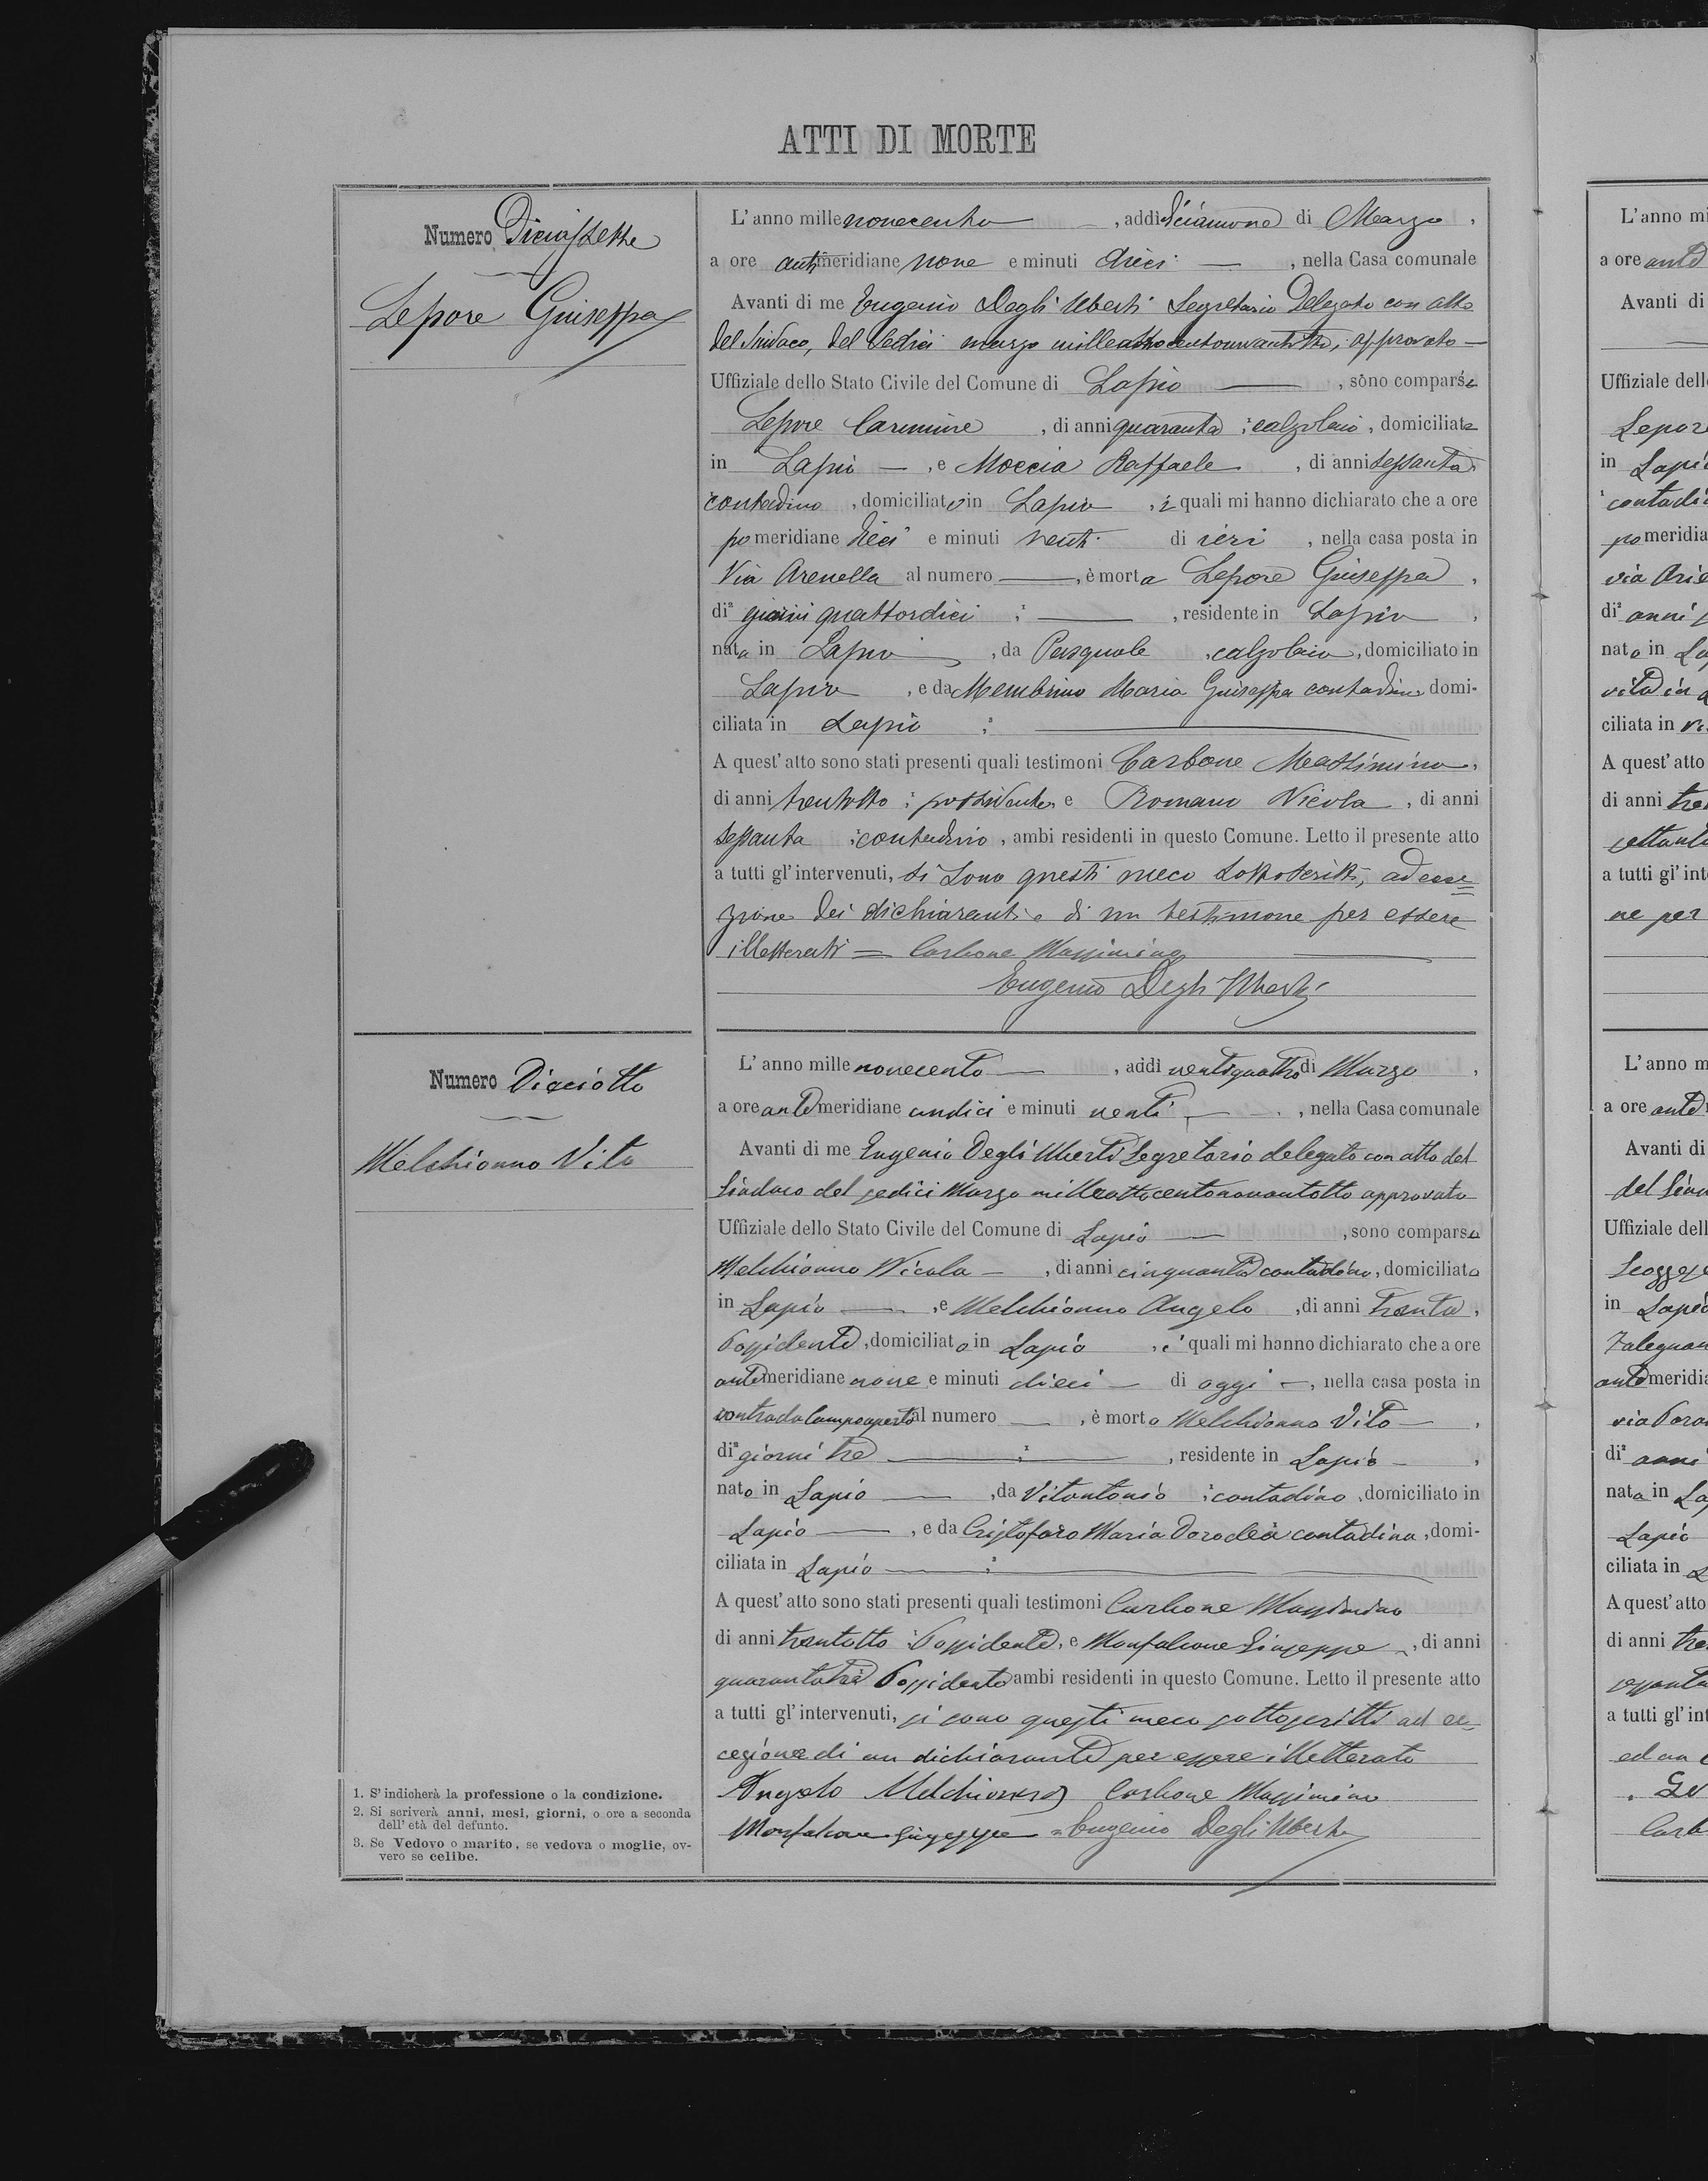 ATTI DI MORTE
Numero Diciassette
Lepore Giuseppa
L'anno mille novecento , addì diciannove di Marzo ,
a ore antimeridiane nove e minuti dieci , nella Casa comunale
Avanti di me Eugenio Degli Uberti Segretario Delegato con atto
del Sindaco, del Sedici marzo milleottocentonovantotto, approvato
Uffiziale dello Stato Civile del Comune di Lapio , sono comparsi
Lepore Carmine , di anni quaranta , calzolaio , domiciliato
in Lapio , e Moccia Raffaele , di anni sessanta ,
contadino , domiciliato in Lapio , i quali mi hanno dichiarato che a ore
pomeridiane dieci e minuti venti di ieri , nella casa posta in
Via Arenella al numero , è morta Lepore Giuseppa ,
di giorni quattordici , , residente in Lapio ,
nata in Lapio , da Pasquale , calzolaio , domiciliato in
Lapio , e da Membrino Maria Giuseppa contadina domi-
ciliata in Lapio ;
A quest'atto sono stati presenti quali testimoni Carbone Massimino ,
di anni trentotto , possidente , e Romano Nicola , di anni
sessanta , contadino , ambi residenti in questo Comune. Letto il presente atto
a tutti gl'intervenuti, si sono questi meco sottoscritti, ad ecce=
zione dei dichiaranti e di un testimone per essere
illetterati = Carbone Massimino
Eugenio Degli Uberti
Numero Diciotto
Melchionno Vito
L'anno mille novecento , addì ventiquattro di Marzo ,
a ore antemeridiane undici e minuti venti , nella Casa comunale
Avanti di me Eugenio Degli Uberti Segretario delegato con atto del
Sindaco del sedici Marzo milleottocentonovantotto approvato
Uffiziale dello Stato Civile del Comune di Lapio , sono comparsi
Melchionno Nicola , di anni cinquanta contadino , domiciliato
in Lapio , e Melchionno Angelo , di anni trenta ,
Possidente , domiciliato in Lapio , i quali mi hanno dichiarato che a ore
antemeridiane nove e minuti dieci di oggi , nella casa posta in
contrada Campoaperto al numero , è morto Melchionno Vito ,
di giorni tre , , residente in Lapio ,
nato in Lapio , da Vitantonio , contadino , domiciliato in
Lapio , e da Cristofaro Maria Dorodea contadina , domi-
ciliata in Lapio ;
A quest'atto sono stati presenti quali testimoni Carbone Massimino
di anni trentotto , Possidente , e Monfalcone Giuseppe , di anni
quarantatre Possidente ambi residenti in questo Comune. Letto il presente atto
a tutti gl'intervenuti, si sono questi meco sottoscritti ad ec-
cezione di un dichiarante per essere illetterato
Angelo Melchionno Carbone Massimino
Monfalcone Giuseppe = Eugenio Degli Uberti
1. S'indicherà la professione o la condizione.
2. Si scriverà anni, mesi, giorni, o ore a seconda
dell'età del defunto.
3. Se Vedovo o marito, se vedova o moglie, ov-
vero se celibe.